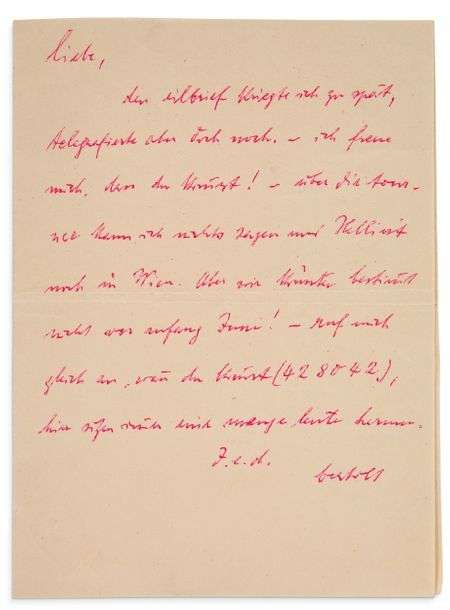 Liebe,
den eilbrief kriegte ich zu spät,
telegrafierte aber doch noch. – ich freue
mich, dass du kommst! – über die tour-
nee kann ich nichts sagen und Helli ist
noch in Wien. Aber wir könnten bestimmt
nicht vor anfang Juni! – ruf mich
gleich an, wenn du kommst (42 80 42),
hier sitzen immer eine menge leute herum.
J. e. d.
bertolt